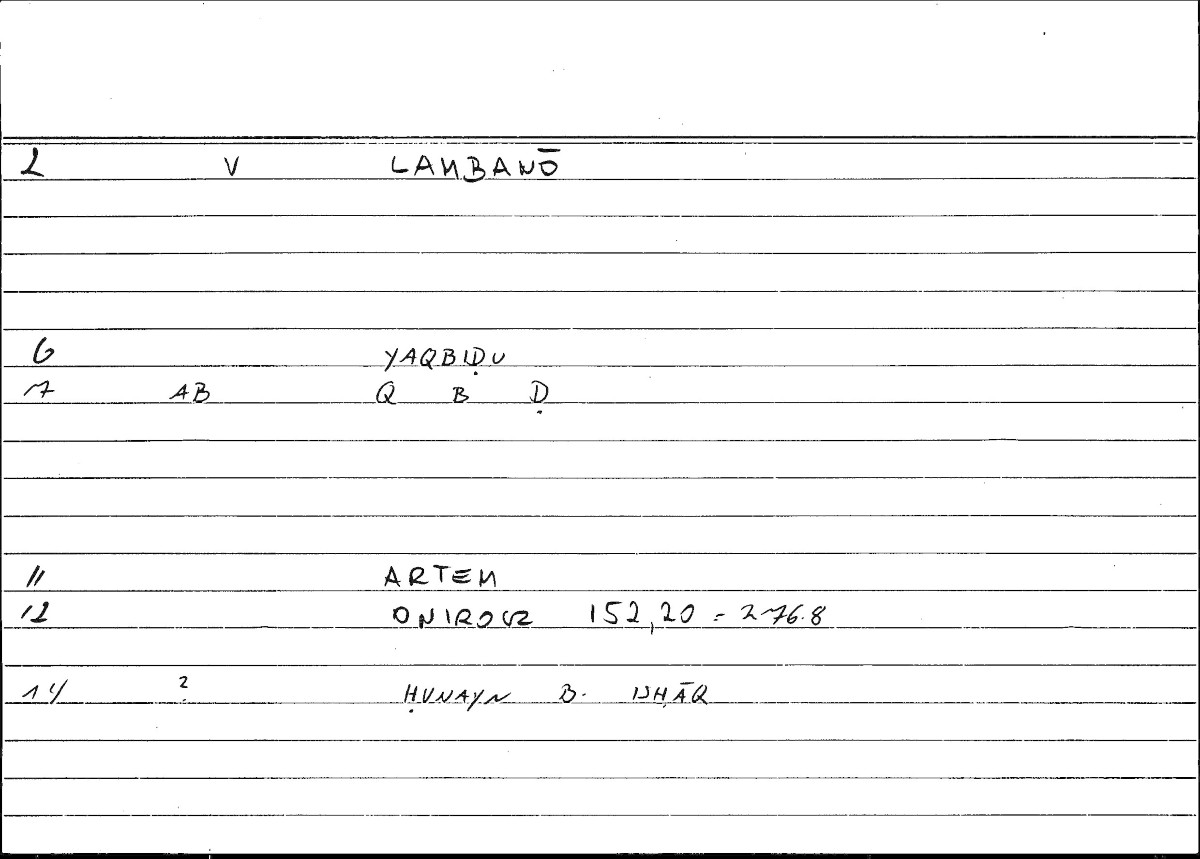 2 V LAMBANŌ
6 YAQBIḌU
7 AB Q B Ḍ
11 ARTEM
12 ONIROCR 152,20 = 276.8
14 ? ḤUNAYN B. ISḤĀQ